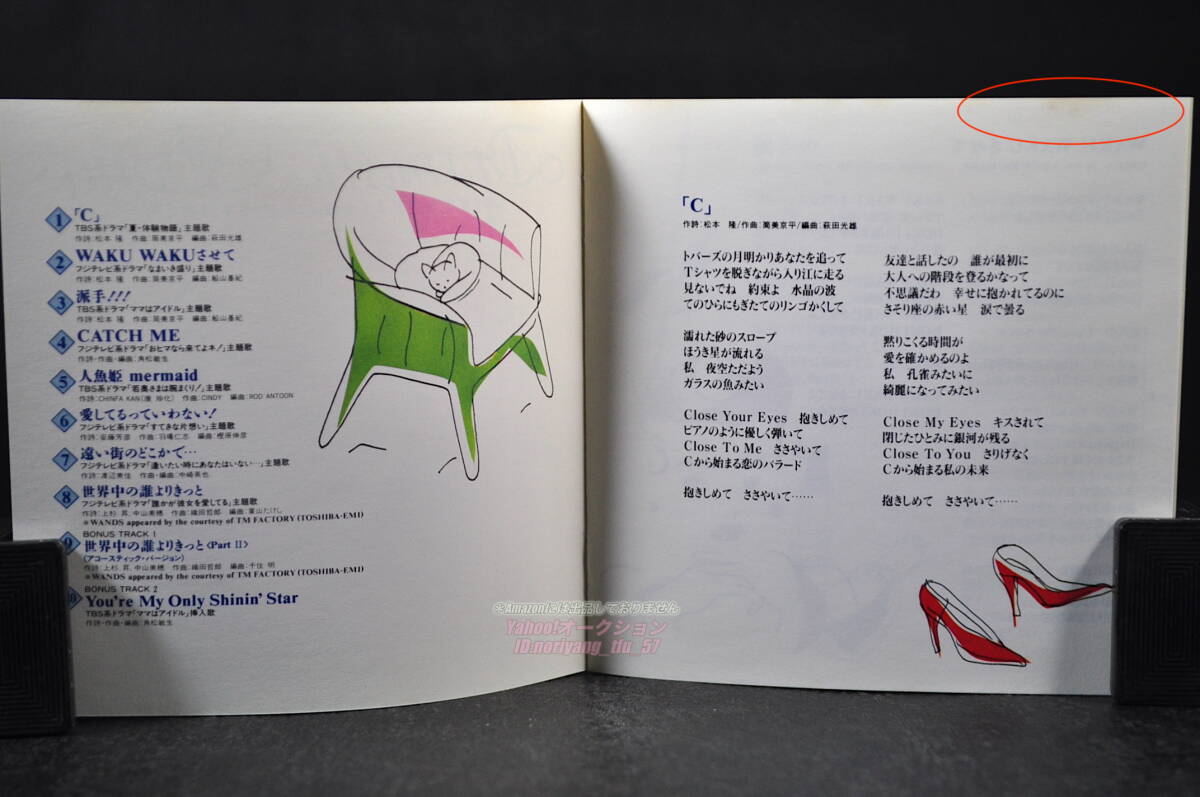 1
「C」
TBS系ドラマ「夏・体験物語」主題歌
作詩:松本 隆 作曲:筒美京平 編曲:萩田光雄
2
WAKU WAKUさせて
フジテレビ系ドラマ「なまいき盛り」主題歌
作詩:松本 隆 作曲:筒美京平 編曲:船山基紀
3
派手!!!
TBS系ドラマ「ママはアイドル」主題歌
作詩:松本 隆 作曲:筒美京平 編曲:船山基紀
4
CATCH ME
フジテレビ系ドラマ「おヒマなら来てよネ!」主題歌
作詩・作曲・編曲:角松敏生
5
人魚姫 mermaid
TBS系ドラマ「若奥さまは腕まくり!」主題歌
作詩:CHINFA KAN(康 珍化) 作曲:CINDY 編曲:ROD ANTOON
6
愛してるっていわない!
フジテレビ系ドラマ「すてきな片想い」主題歌
作詩:安藤芳彦 作曲:羽場仁志 編曲:樫原伸彦
7
遠い街のどこかで…
フジテレビ系ドラマ「逢いたい時にあなたはいない…」主題歌
作詩:渡辺美佳 作曲・編曲:中崎英也
8
世界中の誰よりきっと
フジテレビ系ドラマ「誰かが彼女を愛してる」主題歌
作詩:上杉 昇、中山美穂 作曲:織田哲郎 編曲:葉山たけし
※WANDS appeared by the courtesy of TM FACTORY (TOSHIBA-EMI)
9
BONUS TRACK 1
世界中の誰よりきっと〈Part II〉
(アコースティック・バージョン)
作詩:上杉 昇、中山美穂 作曲:織田哲郎 編曲:千住 明
※WANDS appeared by the courtesy of TM FACTORY (TOSHIBA-EMI)
BONUS TRACK 2
You're My Only Shinin' Star
TBS系ドラマ「ママはアイドル」挿入歌
作詩・作曲・編曲:角松敏生
「C」
作詩:松本 隆/作曲:筒美京平/編曲:萩田光雄
トパーズの月明かりあなたを追って
Tシャツを脱ぎながら入り江に走る
見ないでね 約束よ 水晶の波
てのひらにもぎたてのリンゴかくして
濡れた砂のスロープ
ほうき星が流れる
私 夜空ただよう
ガラスの魚みたい
Close Your Eyes 抱きしめて
ピアノのように優しく弾いて
Close To Me ささやいて
Cから始まる恋のバラード
抱きしめて ささやいて……
友達と話したの 誰が最初に
大人への階段を登るかなって
不思議だわ 幸せに抱かれてるのに
さそり座の赤い星 涙で曇る
黙りこくる時間が
愛を確かめるのよ
私 孔雀みたいに
綺麗になってみたい
Close My Eyes キスされて
閉じたひとみに銀河が残る
Close To You さりげなく
Cから始まる私の未来
抱きしめて ささやいて……
※Amazonには出品しておりません
Yahoo!オークション
ID.noriyang_tiu_57